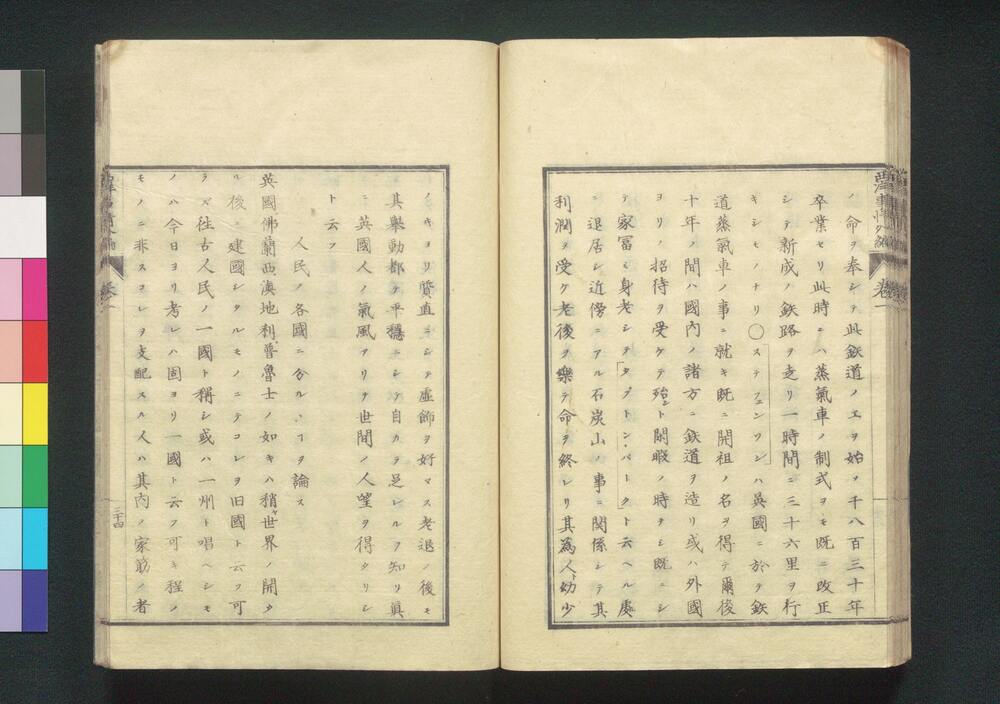 ノ命ヲ奉シテ此鉄道ノエヲ始ノ千八百三十年
卒業セリ此時ニハ蒸氣車ノ制式ヲモ既ニ改正
シテ新成ノ鉄路ヲ走リ一時間ニ三十六里ヲ行
キシモノナリ〇ステフェンソンハ英國ニ於テ鉄
道蒸氣車ノ事ニ就キ既ニ開祖ノ名ヲ得テ爾後
十年ノ間ハ國内ノ諸方ニ鉄道ヲ造リ或ハ外國
ヨリノ招待ヲ受ケテ殆ント閑暇ノ時ヲシ既ニシ
テ家冨ミ身老シテタプトンパークト云ヘル處
ニ退居シ近傍ニアル石炭山ノ事ニ関係シテ其
利潤ヲ受ケ老後ヲ樂テ命ヲ終レリ其為人ト幼少
西洋事情外編 巻之一
ノキヨリ質直ニシテ虚飾ヲ好マス老退ノ後モ
其舉動都テ平穏ニシテ自カラ足レルヲ知リ眞
ニ英國人ノ氣風アリテ世間ノ人望ヲ得タリシ
ト云フ
人民ノ各國ニ分ルヽヿヲ論ス
英國佛蘭西澳地利普魯士ノ如キハ稍ヤ世界ノ開ケ
ル後ニ建國シタルモノニテコレヲ旧國ト云フ可
ラズ徃古人民ノ一國ト稱シ或ハ一州ト唱ヘシモ
ノハ今日ヨリ考レハ固ヨリ一國ト云フ可キ程ノ
モノニ非スコレヲ支配スル人ハ其内ノ家筋ノ者
三十四